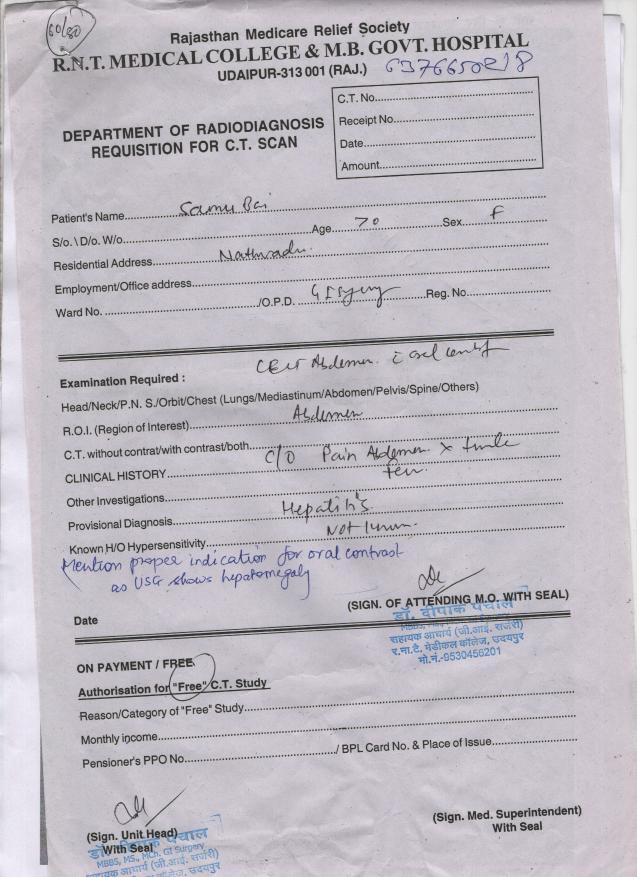 60/80
Rajasthan Medicare Relief Society
R.N.T. MEDICAL COLLEGE & M.B. GOVT. HOSPITAL
UDAIPUR-313 001 (RAJ.) 6376650818
C.T. No.
Receipt No.
Date
Amount
DEPARTMENT OF RADIODIAGNOSIS
REQUISITION FOR C.T. SCAN
Patient's Name Samu Bai
S/o. \ D/o. W/o Age 70 Sex F
Residential Address
Employment/Office address
Ward No. /O.P.D. GI Surgery Reg. No.
Examination Required : CECT Abdomen c̄ oral contrast
Head/Neck/P.N. S./Orbit/Chest (Lungs/Mediastinum/Abdomen/Pelvis/Spine/Others)
R.O.I. (Region of Interest) Abdomen
C.T. without contrat/with contrast/both
CLINICAL HISTORY C/O Pain Abdomen x
Other Investigations
Provisional Diagnosis Hepatitis
Known H/O Hypersensitivity Not known
Mention proper indication for oral contrast
as USG shows hepatomegaly
(SIGN. OF ATTENDING M.O. WITH SEAL)
Date
डॉ. दीपक पंचाल
सहायक आचार्य (जी.आई. सर्जरी)
र.ना.टै. मेडीकल कॉलेज, उदयपुर
मो.नं.-9530456201
ON PAYMENT / FREE
Authorisation for "Free" C.T. Study
Reason/Category of "Free" Study
Monthly income
Pensioner's PPO No. / BPL Card No. & Place of Issue
(Sign. Unit Head)
With Seal
(Sign. Med. Superintendent)
With Seal
डॉ. दीपक पंचाल
MBBS, MS, MCh, GI Surgery
सहायक आचार्य (जी.आई. सर्जरी)
कॉलेज, उदयपुर